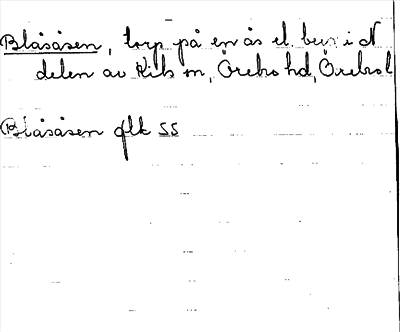 Blåsåsen, torp på en ås el. berg i N
delen av Kils sn, Örebro hd, Örebro l
Blåsåsen glk SS